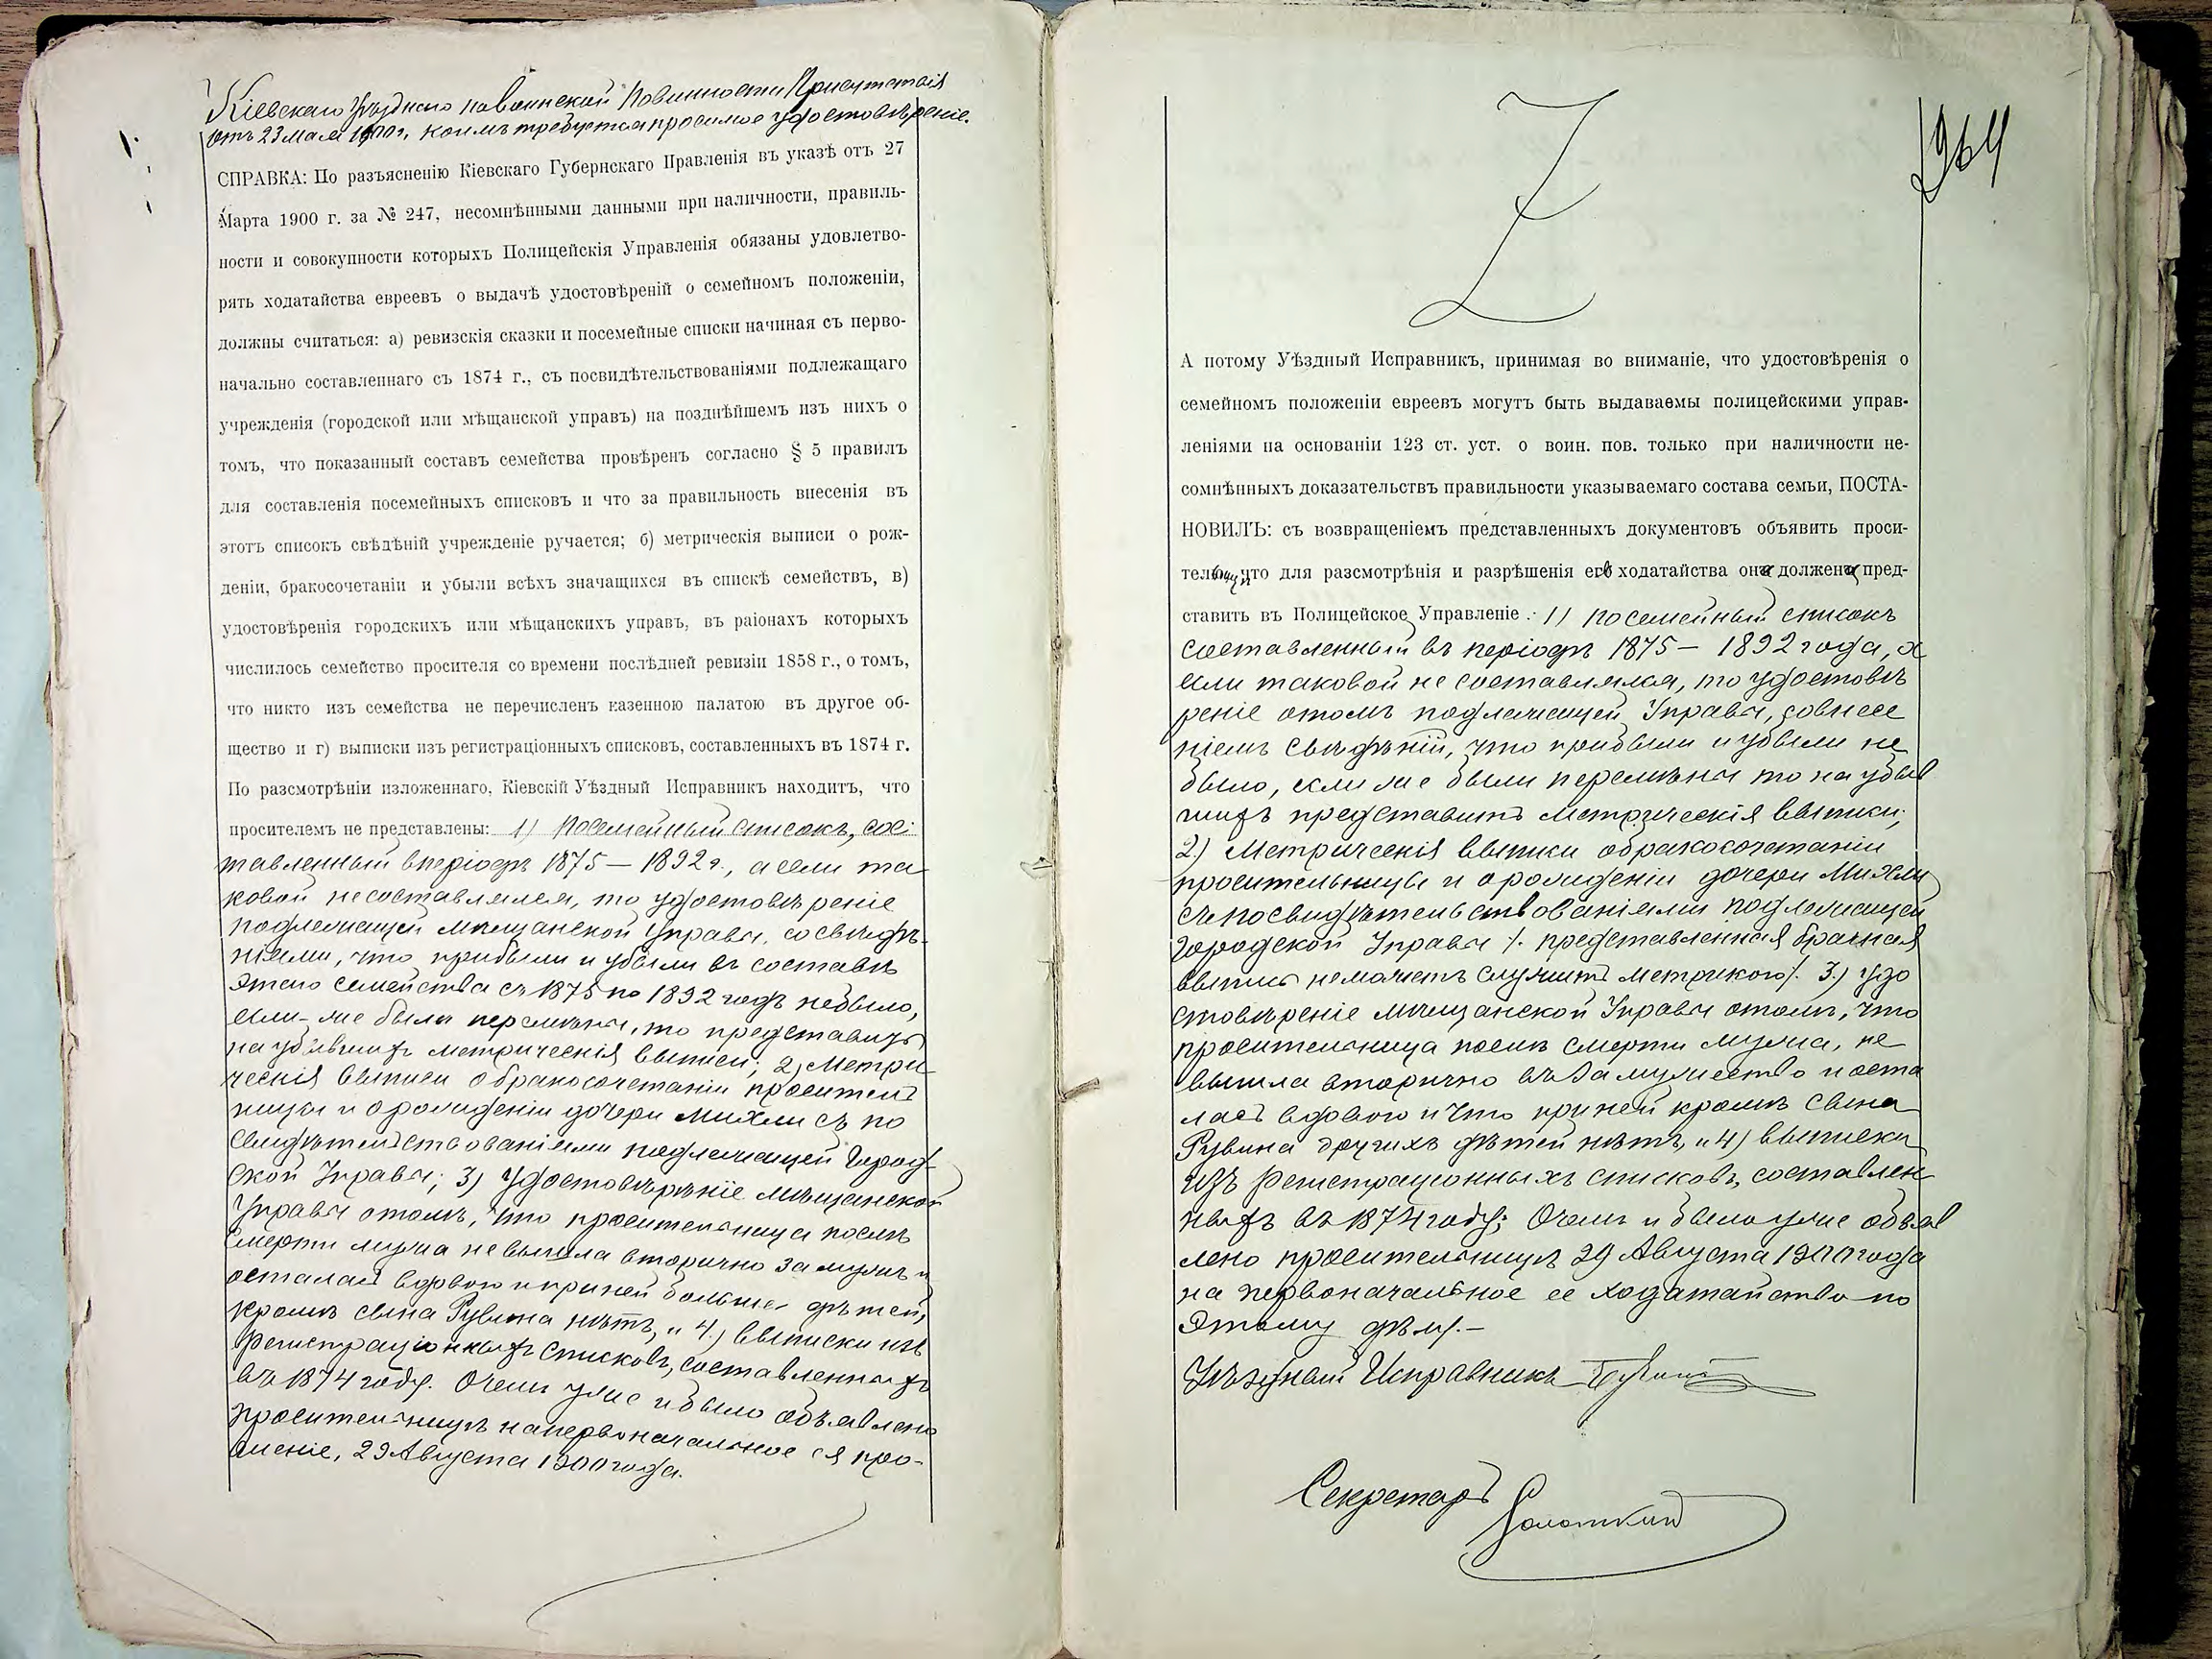 Кіевскаго Уѣзднаго по воинской Повинности Присутствія
отъ 23 мая 1900 г., коимъ требуется просимое удостовѣреніе.
СПРАВКА: По разъясненію Кіевскаго Губернскаго Правленія въ указѣ отъ 27
Марта 1900 г. за № 247, несомнѣнными данными при наличности, правиль-
ности и совокупности которыхъ Полицейскія Управленія обязаны удовлетво-
рять ходатайства евреевъ о выдачѣ удостовѣреній о семейномъ положеніи,
должны считаться: а) ревизскія сказки и посемейные списки начиная съ перво-
начально составленнаго съ 1874 г., съ посвидѣтельствованіями подлежащаго
учрежденія (городской или мѣщанской управъ) на позднѣйшемъ изъ нихъ о
томъ, что показанный составъ семейства провѣренъ согласно § 5 правилъ
для составленія посемейныхъ списковъ и что за правильность внесенія въ
этотъ списокъ свѣдѣній учрежденіе ручается; б) метрическія выписи о рож-
деніи, бракосочетаніи и убыли всѣхъ значащихся въ спискѣ семействъ, в)
удостовѣренія городскихъ или мѣщанскихъ управъ, въ раіонахъ которыхъ
числилось семейство просителя со времени послѣдней ревизіи 1858 г., о томъ,
что никто изъ семейства не перечисленъ казенною палатою въ другое об-
щество и г) выписки изъ регистраціонныхъ списковъ, составленныхъ въ 1874 г.
По разсмотрѣніи изложеннаго, Кіевскій Уѣздный Исправникъ находитъ, что
просителемъ не представлены: 1) Посемейный списокъ, сос-
тавленный въ періодъ 1875 — 1892 г., а если та
ковой не составлялся, то удостовѣреніе
подлежащей мѣщанской Управы, со свѣдѣ-
ніями, что прибыли и убыли въ составѣ
этого семейства съ 1875 по 1892 годъ не было,
если-же были перемѣны, то представить
на убывшихъ метрическія выписи; 2) Метри
ческія выписи о бракосочетаніи проситель
ницы и о рожденіи дочери Михли съ по
свидѣтельствованіями подлежащей Город
ской Управы; 3) Удостовѣреніе мѣщанской
Управы о томъ, что просительница послѣ
смерти мужа не вышла вторично замужъ и
осталась вдовою и при ней больше дѣтей,
кромѣ сына Рувина нѣтъ, и 4) выписки изъ
регистраціонныхъ списковъ, составленныхъ
въ 1874 году. О чемъ уже и было объявлено
просительницѣ на первоначальное ея про-
шеніе, 29 Августа 1900 года.
264
А потому Уѣздный Исправникъ, принимая во вниманіе, что удостовѣренія о
семейномъ положеніи евреевъ могутъ быть выдаваемы полицейскими управ-
леніями на основаніи 123 ст. уст. о воин. пов. только при наличности не-
сомнѣнныхъ доказательствъ правильности указываемаго состава семьи, ПОСТА-
НОВИЛЪ: съ возвращеніемъ представленныхъ документовъ объявить проси-
тельницѣ что для разсмотрѣнія и разрѣшенія ея ходатайства она должена пред-
ставить въ Полицейское Управленіе: 1) посемейный списокъ
составленный въ періодъ 1875 — 1892 года, а
если таковой не составлялся, то удостовѣ
реніе о томъ подлежащей Управы, со внесе
ніемъ свѣдѣній, что прибыли и убыли не
было, если же были перемѣны то на убыв
шихъ представить метрическія выписи;
2) Метрическія выписи о бракосочетаніи
просительницы и о рожденіи дочери Михли
съ посвидѣтельствованіями подлежащей
Городской Управы /. представленная брачная
выпись не можетъ служить метрикою /. 3) удо
стовѣреніе мѣщанской Управы о томъ, что
просительница послѣ смерти мужа, не
вышла вторично въ замужество и оста
лась вдовою и что при ней кромѣ сына
Рувина другихъ дѣтей нѣтъ, и 4) выписки
изъ регистраціонныхъ списковъ, составлен
ныхъ въ 1874 году; О чемъ и было уже объяв
лено просительницѣ 29 Августа 1900 года
на первоначальное ее ходатайство по
этому дѣлу. —
Уѣздный Исправникъ
Секретарь